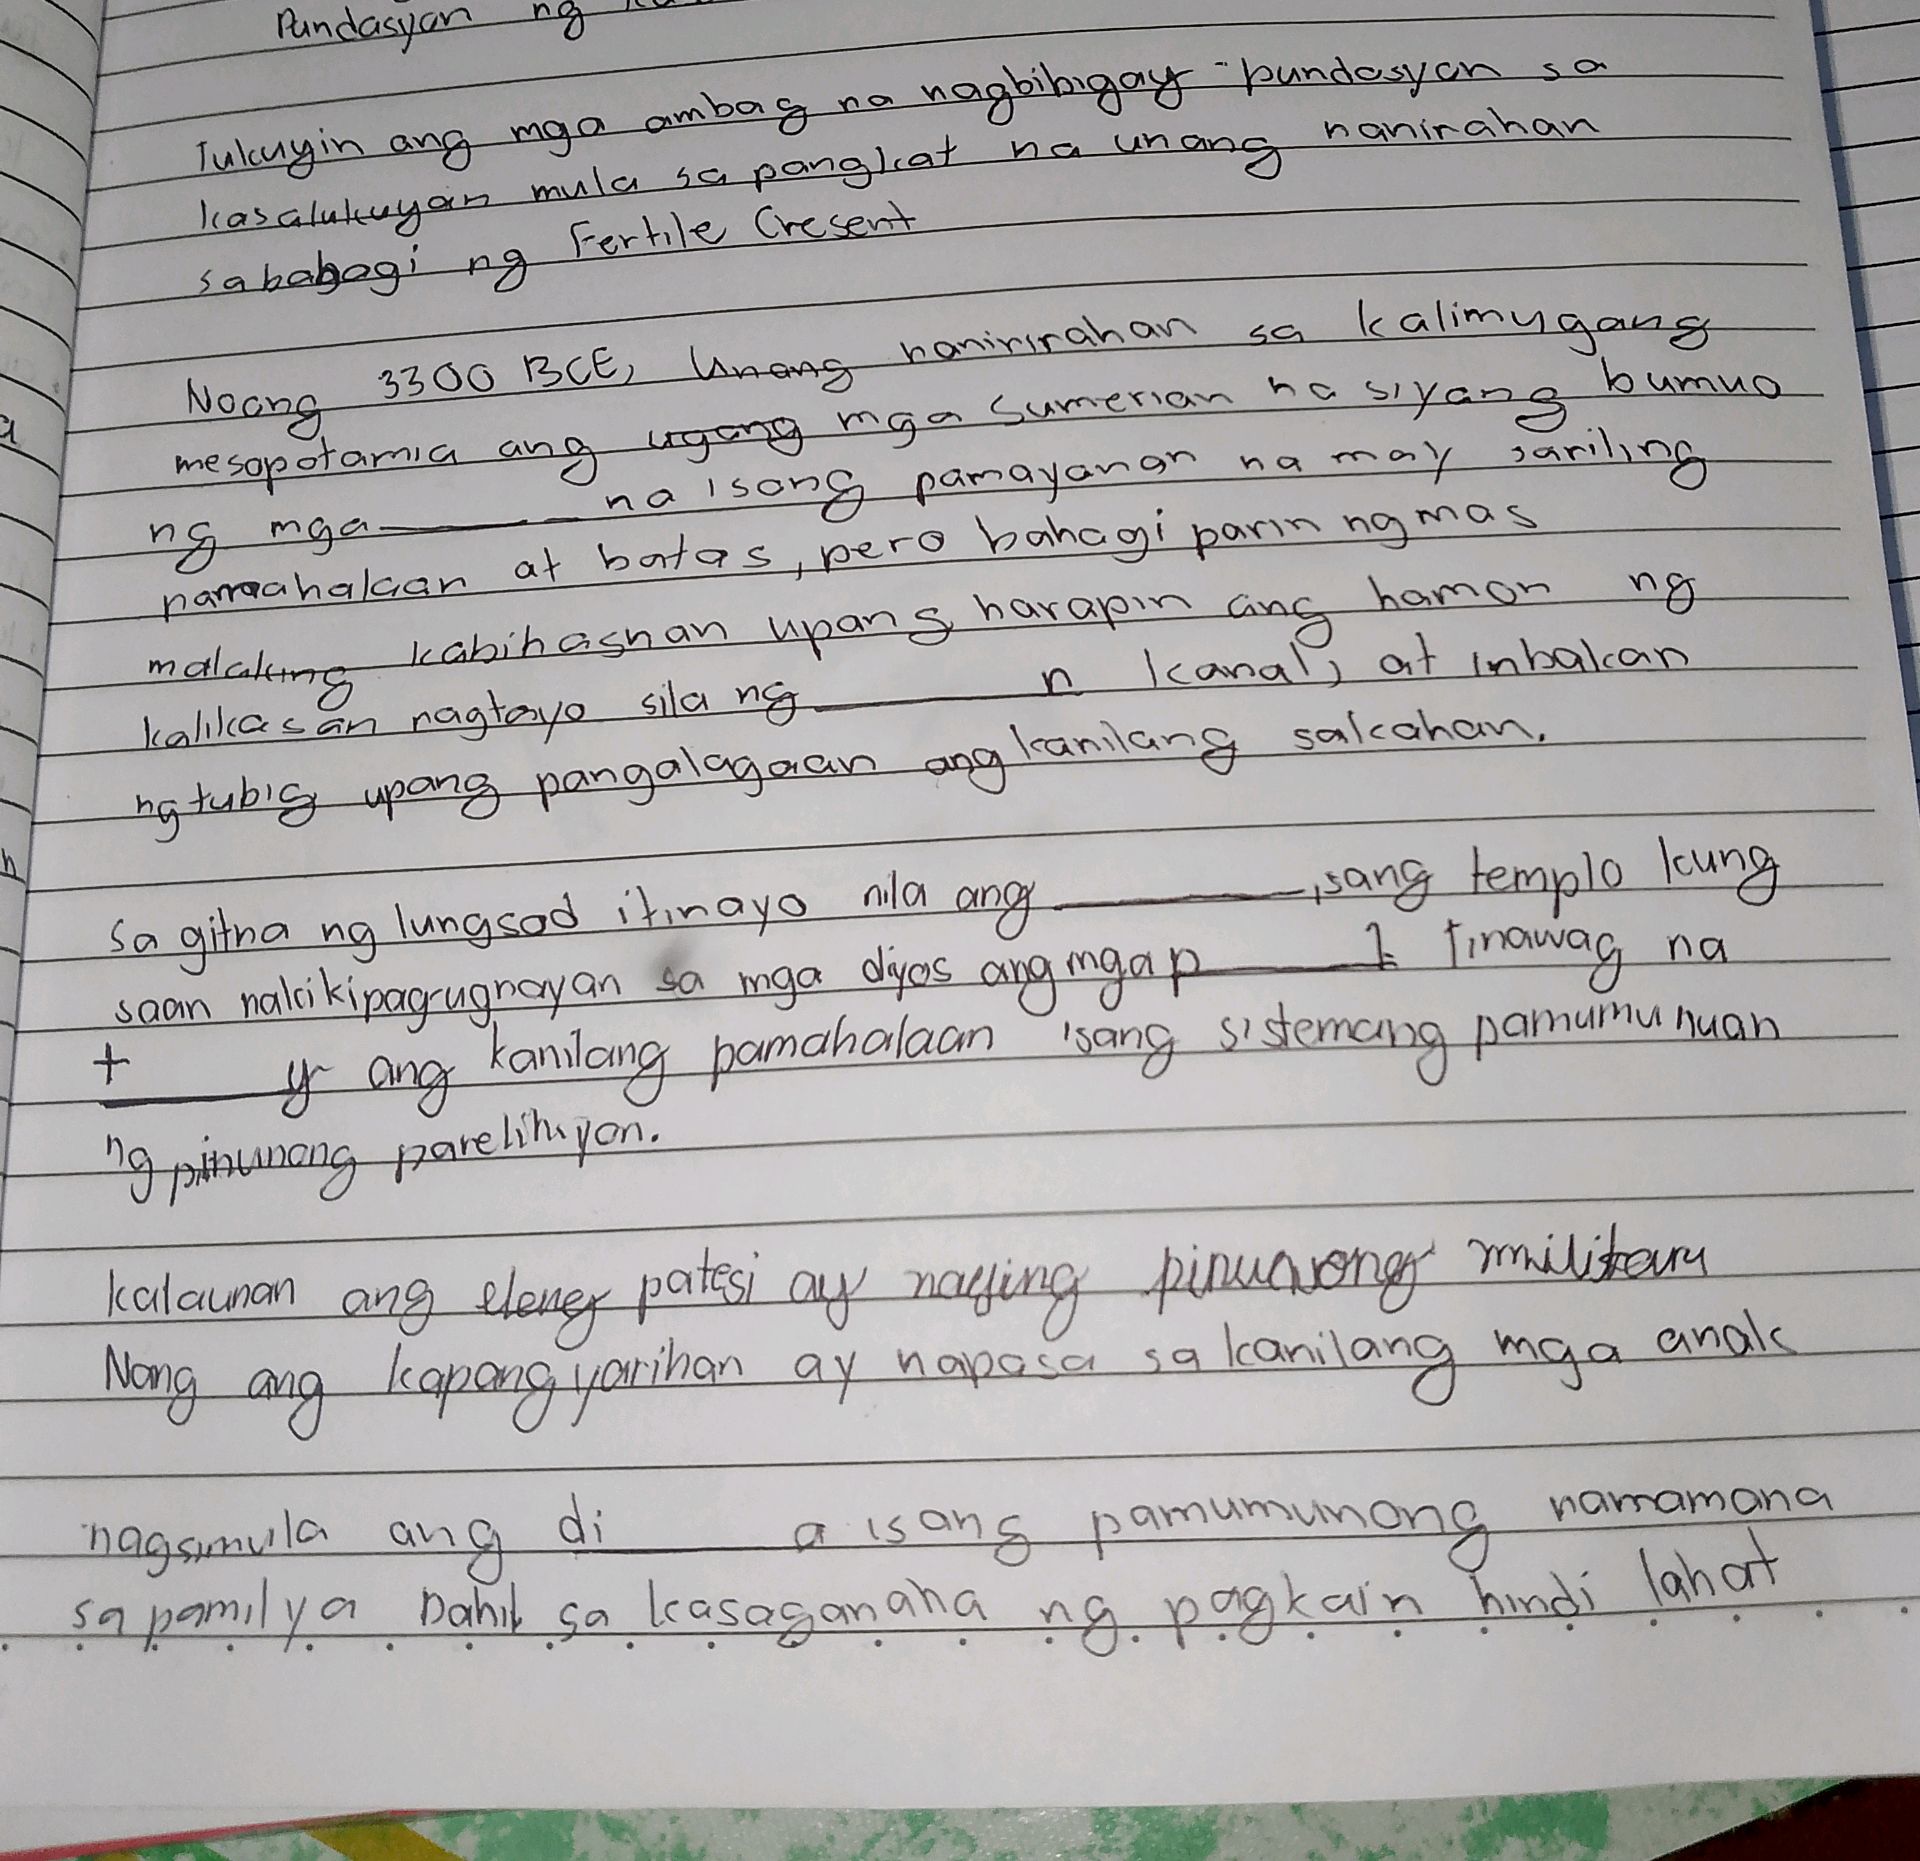 Pundasyon ng
Tukuyin ang mga ambag na nagbibigay pundasyon sa
kasalukuyan mula sa pangkat na unang nanirahan
sa bahagi ng Fertile Cresent
Noong 3300 BCE, Unang nanirirahan sa kalimugang
mesopotamia ang ugang mga Sumerian na siyang bumuo
ng mga ______ na isang pamayanan na may sariling
pamahalaan at batas, pero bahagi parin ng mas
malaking kabihasnan upang harapin ang hamon ng
kalikasan nagtayo sila ng ______ n kanal, at inbakan
ng tubig upang pangalagaan ang kanilang sakahan.
Sa gitna ng lungsod itinayo nila ang ______, isang templo kung
saan nakikipagrugnayan sa mga diyos ang mga p______ I Tinawag na
t______y ang kanilang pamahalaan isang sistemang pamumunuan
ng pinunong parelihiyon.
kalaunan ang patesi ay naging pinunong military
Nang ang kapangyarihan ay napasa sa kanilang mga anak
nagsimula ang di______a isang pamumunong namamana
sa pamilya Dahil sa kasaganaha ng pagkain hindi lahat